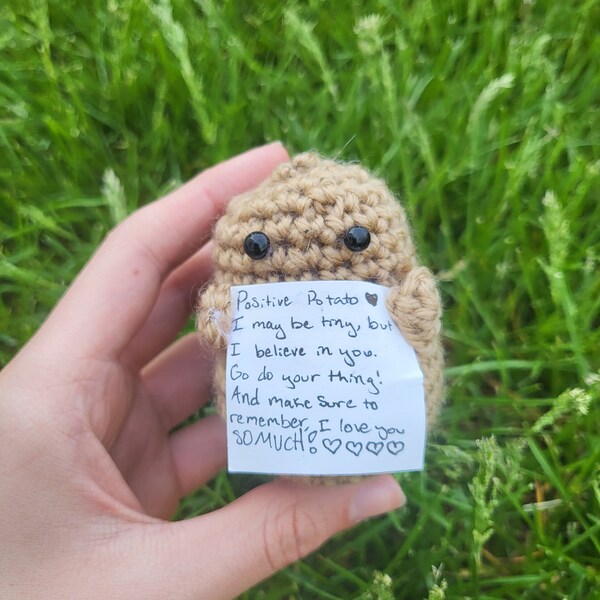 Positive Potato ♥
I may be tiny, but
I believe in you.
Go do your thing!
And make sure to
remember, I love you
SO MUCH! ♡♡♡♡